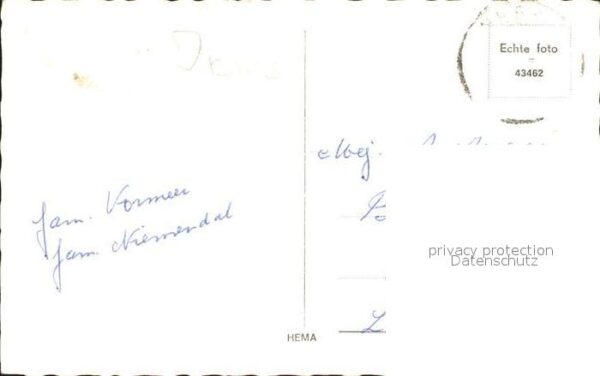 Echte foto
43462
Mej.
fam. Vormeer
fam. Niemendal
privacy protection
Datenschutz
HEMA